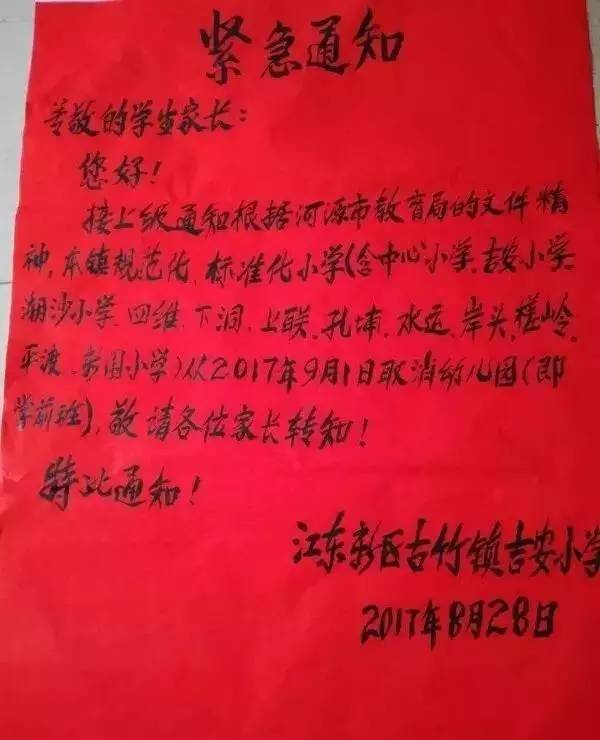 紧急通知
尊敬的学生家长:
您好!
接上级通知根据河源市教育局的文件精
神,本镇规范化、标准化小学(含中心小学、吉安小学、
潮沙小学、四维、下洞、上联、孔埔、水运、岸头、槎岭、
平渡、小学)从2017年9月1日取消幼儿园(即
学前班),敬请各位家长转知!
特此通知!
江东新区古竹镇吉安小学
2017年8月28日